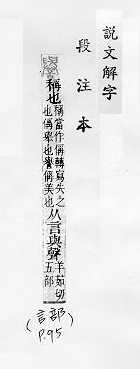 説文解字
段注本
譽
稱也
稱當作偁轉寫失之
也偁舉也譽偁美也
从言與聲
羊茹切
五部
(言部)
P.95